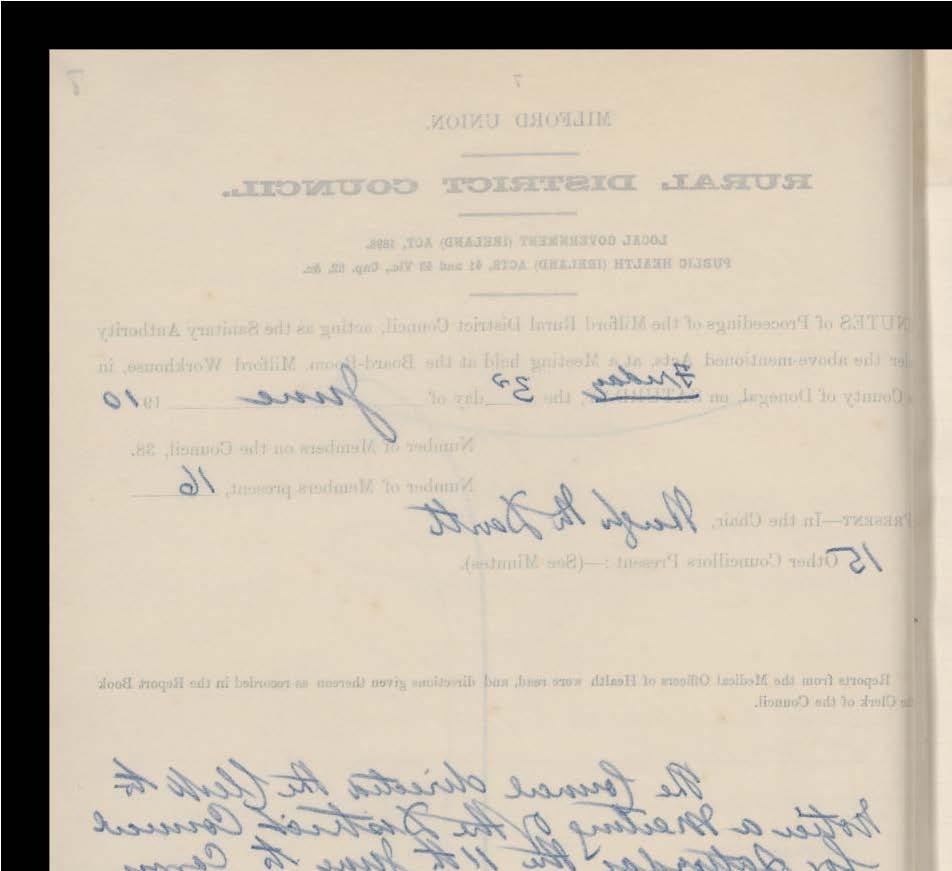 7
7
MILFORD UNION.
RURAL DISTRICT COUNCIL.
LOCAL GOVERNMENT (IRELAND) ACT, 1898.
PUBLIC HEALTH (IRELAND) ACTS, 41 and 42 Vic., Cap. 52, &c.
NUTES of Proceedings of the Milford Rural District Council, acting as the Sanitary Authority
der the above-mentioned Acts, at a Meeting held at the Board-Room, Milford Workhouse, in
County of Donegal, on Friday the 3rd day of June 1910
Number of Members on the Council, 38.
Number of Members present, 16
PRESENT—In the Chair, Hugh
15 Other Councillors Present :—(See Minutes).
Reports from the Medical Officers of Health were read, and directions given thereon as recorded in the Report Book
Clerk of the Council.
The Council directed the Clerk to
notify a Meeting of the District Council
for Saturday the 11th June to